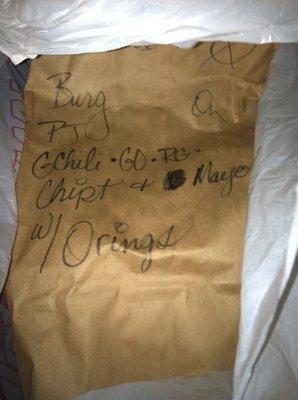 Burg On
PJ
GChili · GO · RG ·
Chipt & Mayo
w/ Orings